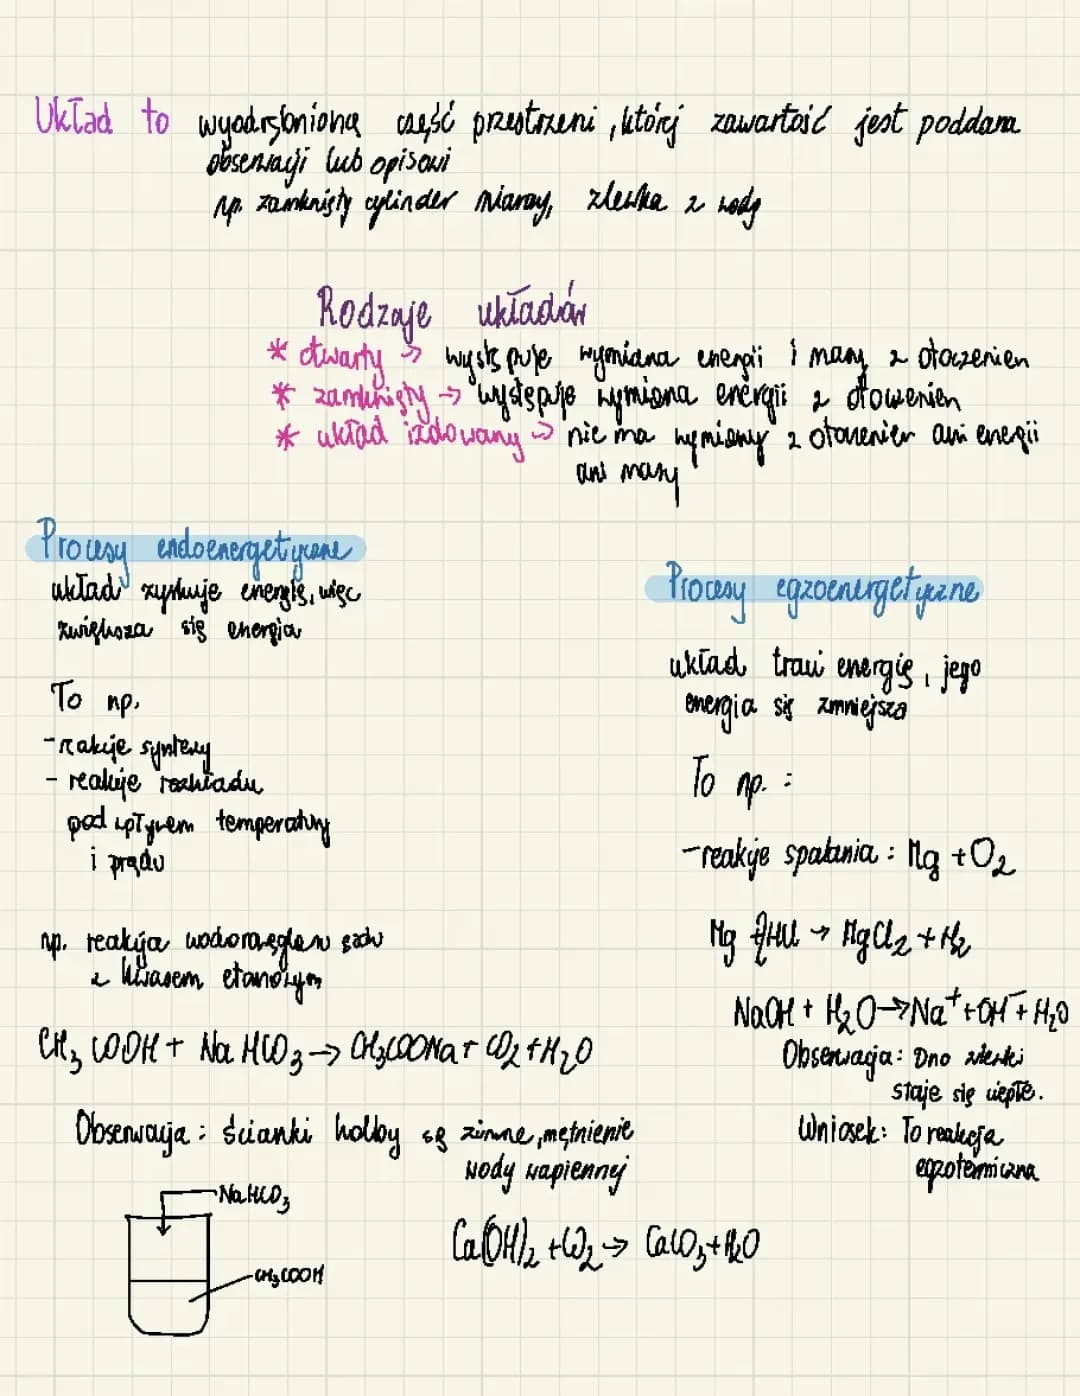 Układ to wyodrębniona część przestrzeni, której zawartość jest poddana
obserwacji lub opisowi
np. zamknięty cylinder miarowy, zlewka z wodą
Rodzaje układów
* otwarty → występuje wymiana energii i masy z otoczeniem
* zamknięty → występuje wymiana energii z otoczeniem
* układ izolowany → nie ma wymiany z otoczeniem ani energii
ani masy
Procesy endoenergetyczne
układ zyskuje energię, więc
zwiększa się energia
To np.
- reakcje syntezy
- reakcje rozkładu
pod wpływem temperatury
i prądu
np. reakcja wodorowęglanu sodu
z kwasem etanowym
CH₃COOH + NaHCO₃ → CH₃COONa + CO₂ + H₂O
Obserwacja: ścianki kolby są zimne, mętnienie
wody wapiennej
NaHCO₃
CH₃COOH
Ca(OH)₂ + CO₂ → CaCO₃ + H₂O
Procesy egzoenergetyczne
układ traci energię, jego
energia się zmniejsza
To np.:
- reakcje spalania: Mg + O₂
Mg + 2HCl → MgCl₂ + H₂
NaOH + H₂O → Na⁺ + OH⁻ + H₂O
Obserwacja: Dno zlewki
staje się ciepłe.
Wniosek: To reakcja
egzotermiczna